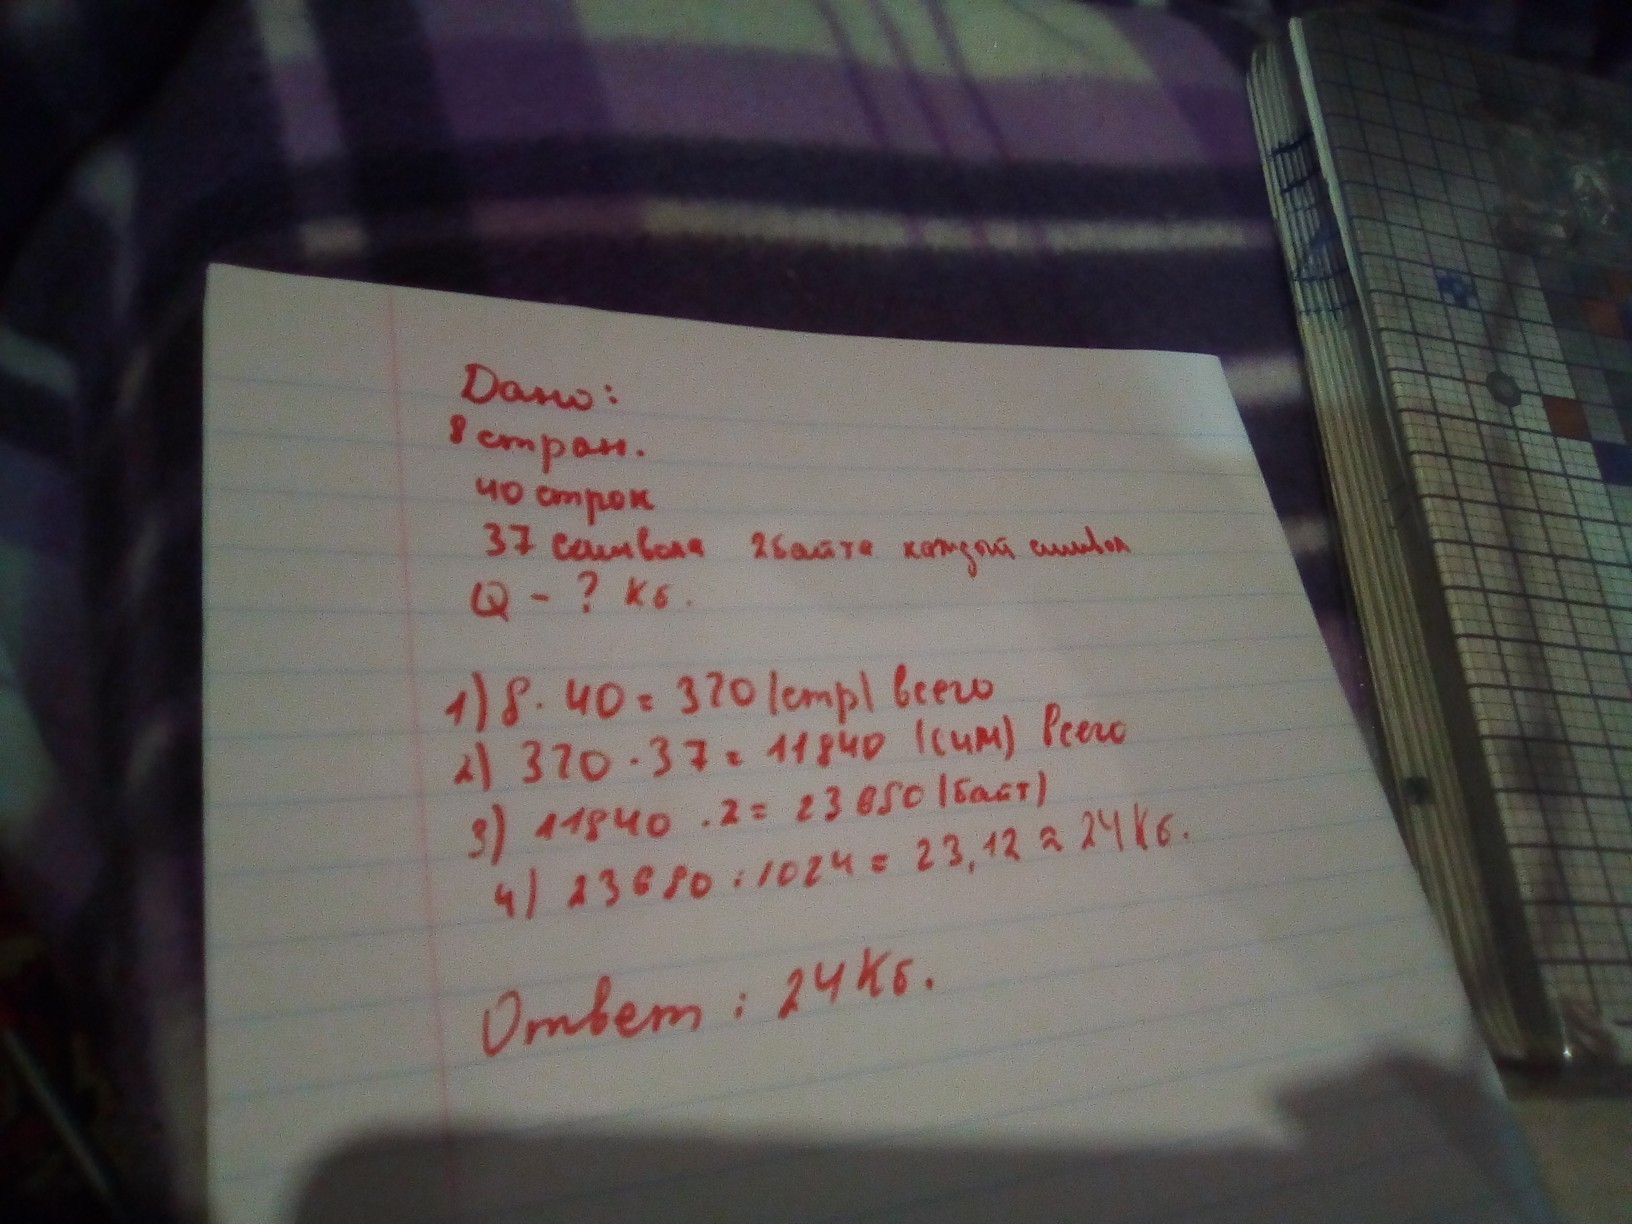 Дано:
8 стран.
40 строк
37 символа 2 байта каждый символ
Q - ? Кб.
1) 8 · 40 = 320 (стр) всего
2) 320 · 37 = 11840 (сим) всего
3) 11840 · 2 = 23680 (байт)
4) 23680 : 1024 = 23,12 ≈ 24 Кб.
Ответ : 24 Кб.